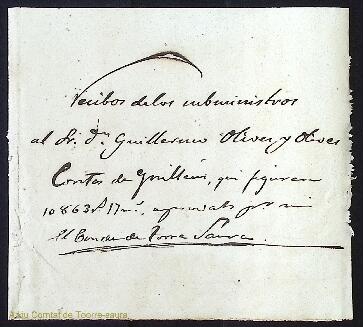 Recibos de los subministros
al Sr. Dn. Guillermo Olives y Olives
Contes de Guillem, qui figuren
10863 17 aprovats per mi
El Conde de Torre Saura
Arxiu Comtat de Toorre-saura